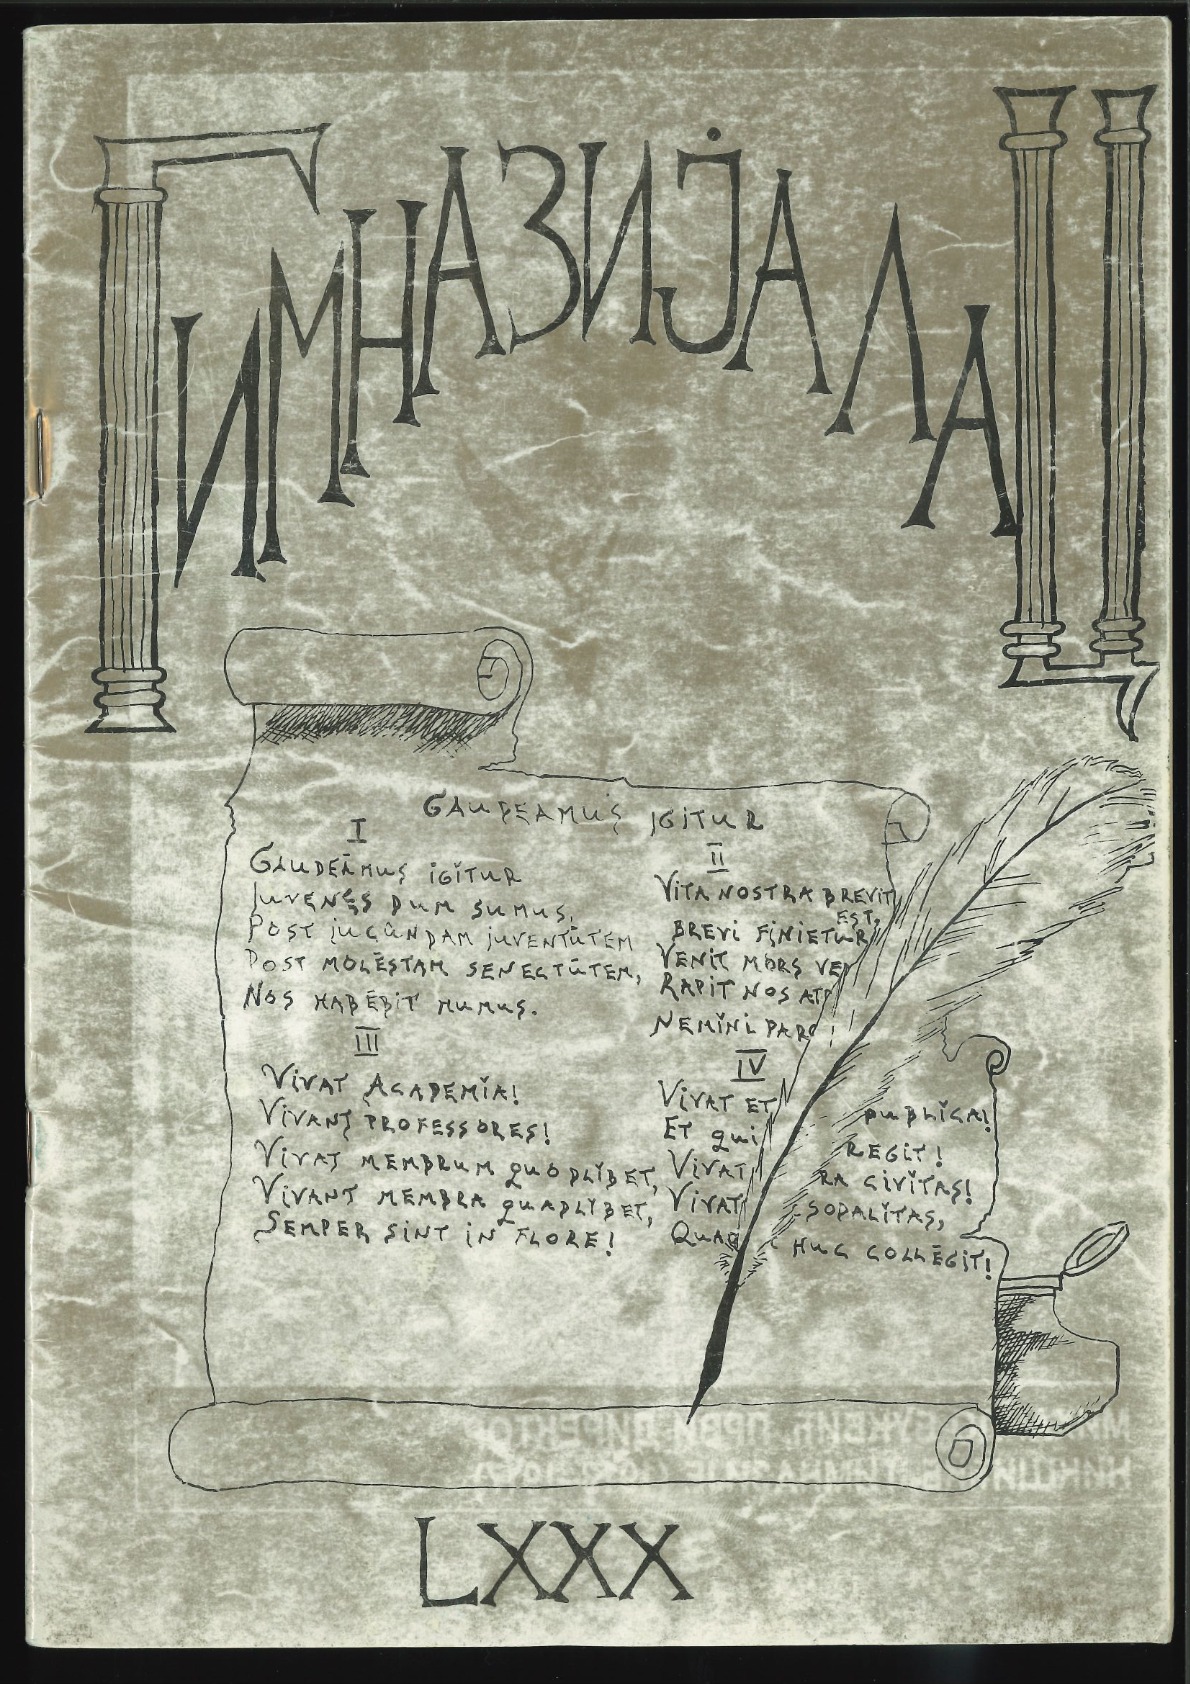 ГИМНАЗИЈАЛАЦ
GAUDEAMUS IGITUR
I
GAUDEĀMUS IGĬTUR
JUVENES DUM SUMUS,
POST JUCŪNDAM JUVENTŪTEM
POST MOLĒSTAM SENECTŪTEM,
NOS HABĒBIT HUMUS.
II
VITA NOSTRA BREVIT
EST,
BREVI FINIETUR
VENIT MORS VE
RAPIT NOS AT
NEMĬNI PARC
III
VIVAT ACADEMĬA!
VIVANT PROFESSORES!
VIVAT MEMBRUM QUODLĬBET,
VIVANT MEMBRA QUADLĬBET,
SEMPER SINT IN FLORE!
IV
VIVAT ET PUBLĬCA!
ET QUI REGIT!
VIVAT RA CIVĬTAS!
VIVAT SODALĬTAS,
QUAE HUC COLLĒGIT!
LXXX